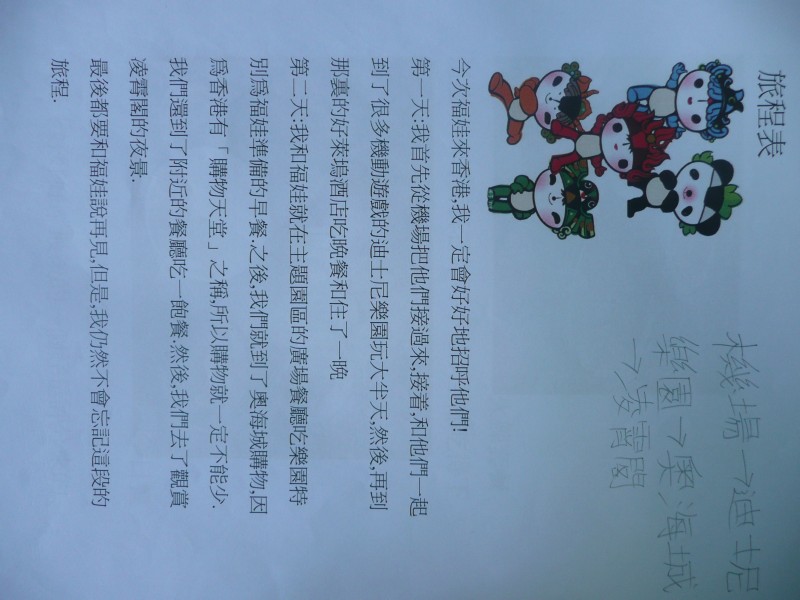 旅程表
機場→迪士尼
樂園→奧海城
→凌霄閣
今次福娃來香港,我一定會好好地招呼他們!
第一天:我首先從機場把他們接過來,接着,和他們一起
到了很多機動遊戲的迪士尼樂園玩大半天,然後,再到
那裏的好萊塢酒店吃晚餐和住了一晚
第二天:我和福娃就在主題園區的廣場餐廳吃樂園特
別爲福娃準備的早餐.之後,我們就到了奧海城購物,因
爲香港有「購物天堂」之稱,所以購物就一定不能少.
我們還到了附近的餐廳吃一飽餐.然後,我們去了觀賞
凌霄閣的夜景.
最後都要和福娃說再見,但是,我仍然不會忘記這段的
旅程.